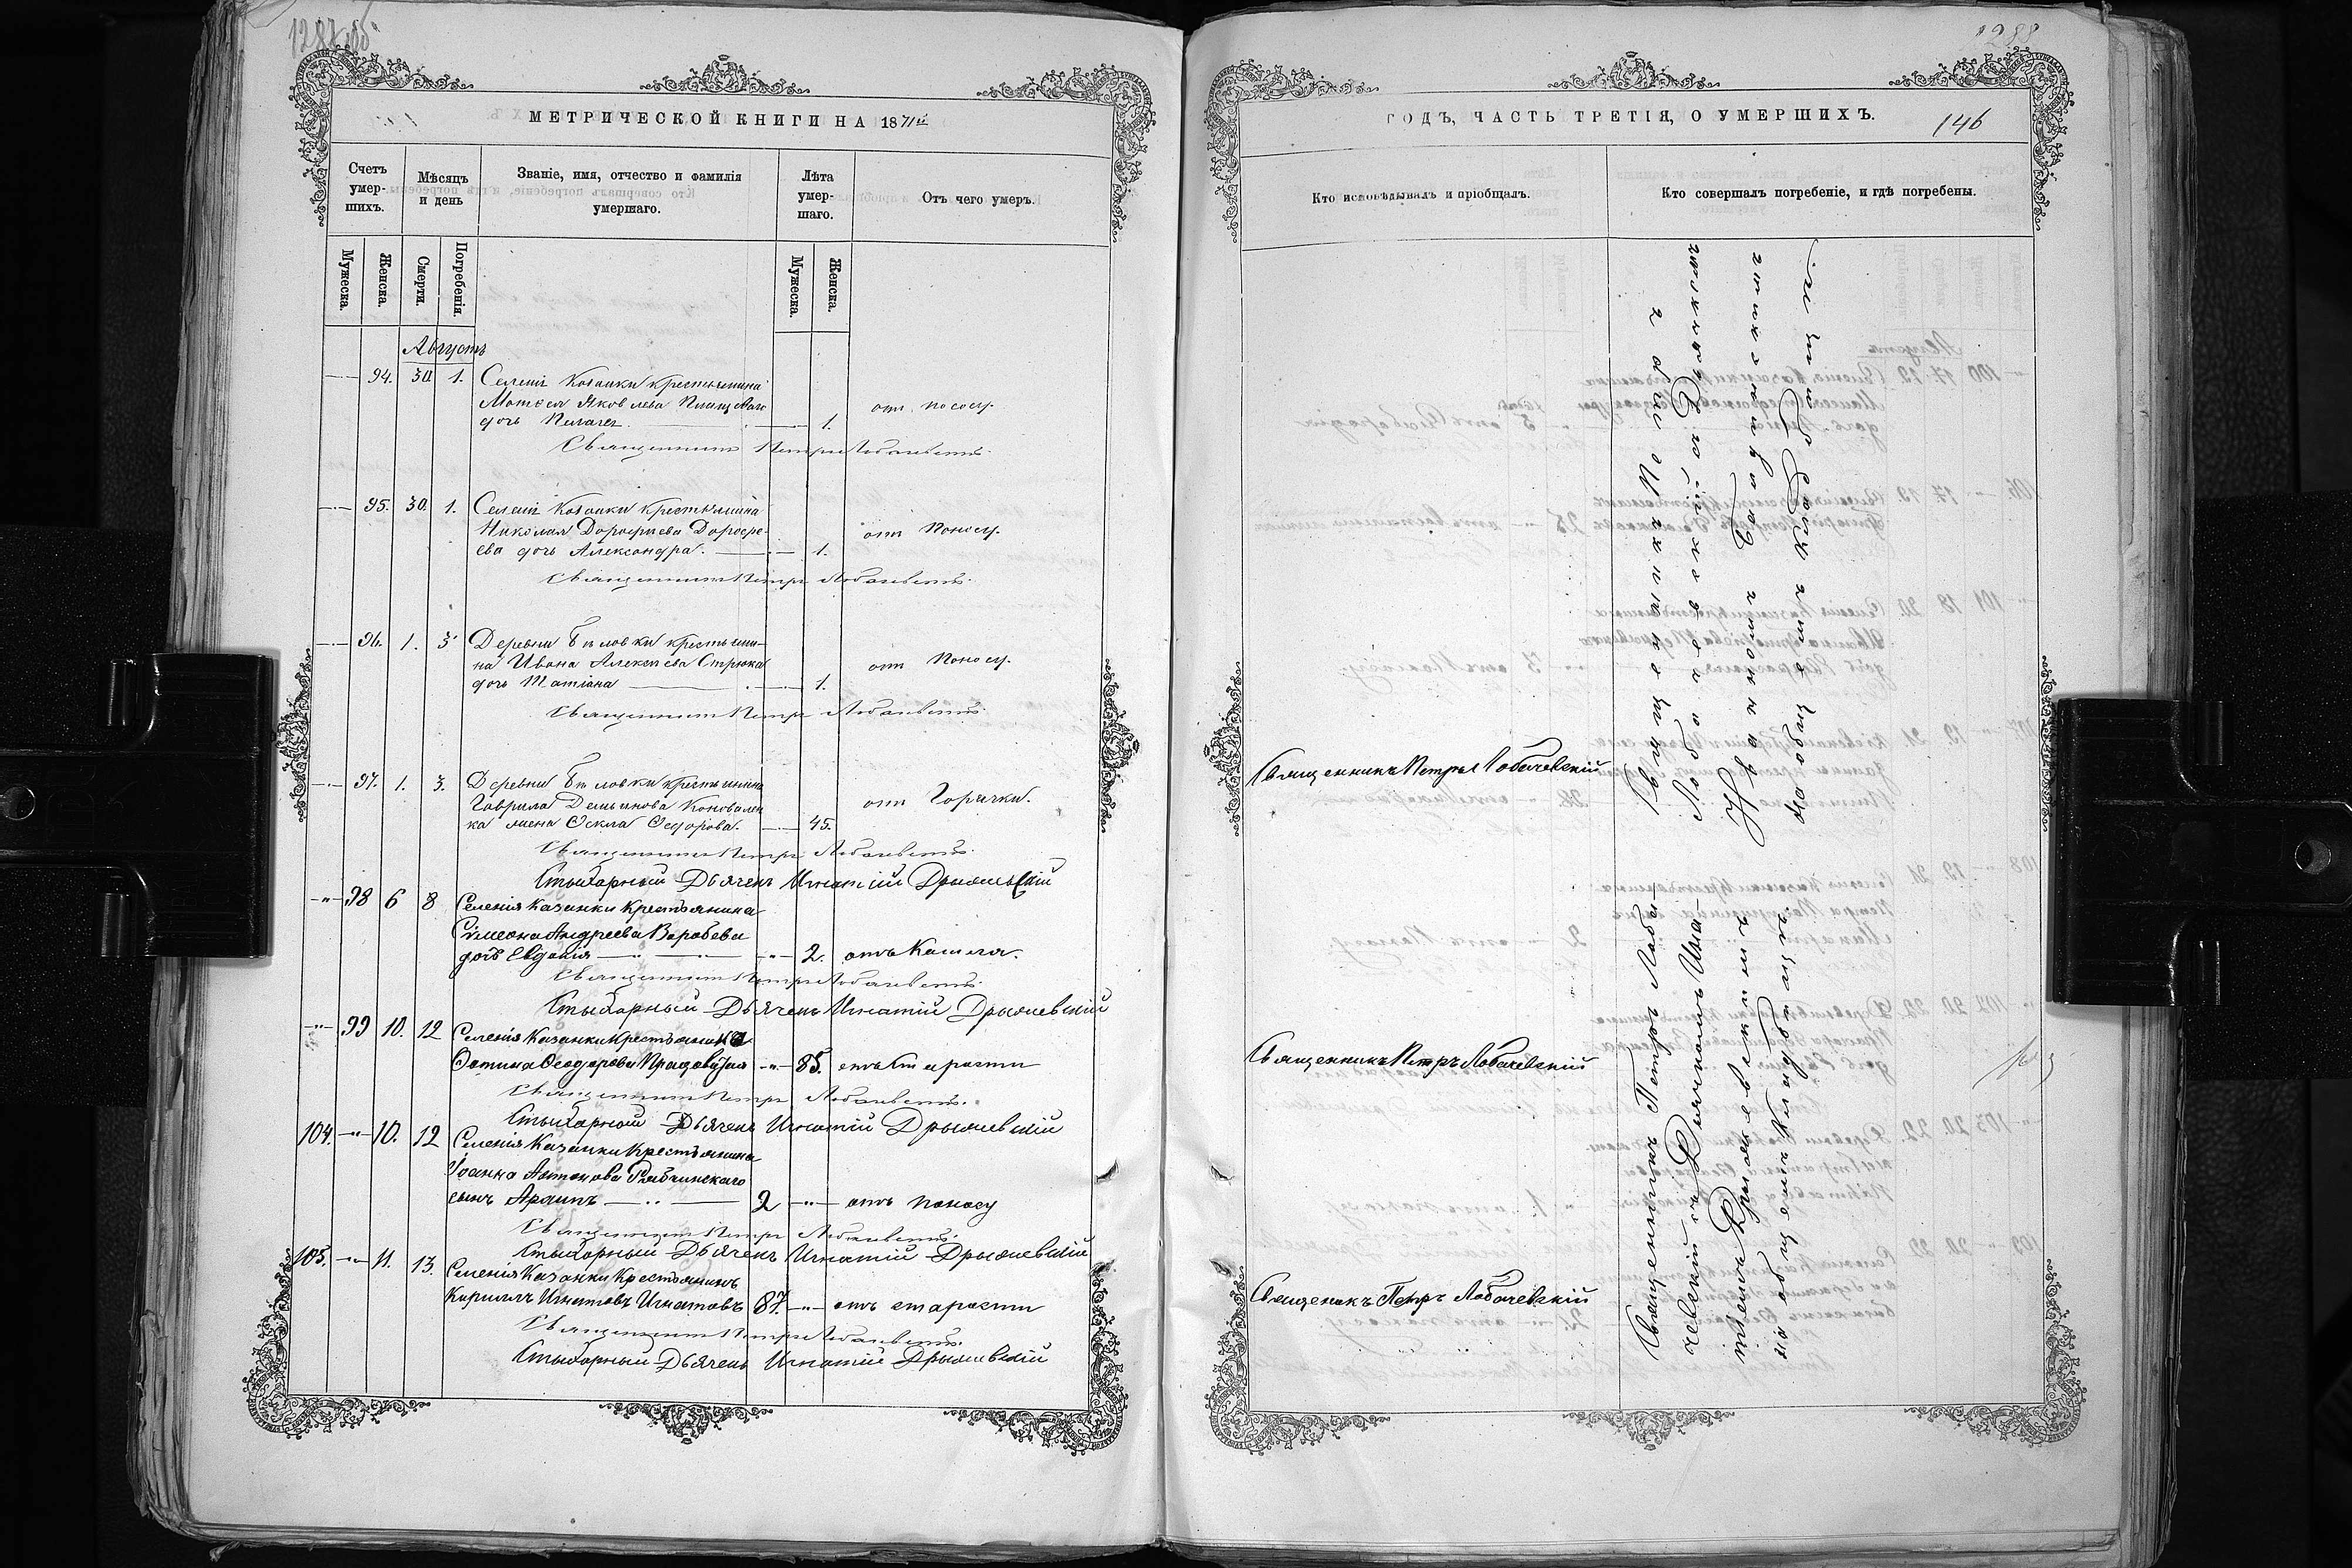 МЕТРИЧЕСКОЙ КНИГИ НА 1871й
Счетъ умер-шихъ.
Мѣсяцъ и день
Званіе, имя, отчество и фамилія умершаго.
Лѣта умер-шаго.
Отъ чего умеръ.
Мужеска.
Женска.
Смерти.
Погребенія.
Мужеска.
Женска.
Августъ
94. 30. 1. Селенія Казанки крестьянина
Матѳея Яковлева
дочь 1. отъ поносу.
Священникъ Петръ Лобачевскій
95. 30. 1. Селенія Казанки крестьянина
Николая Дорофиева Дорофе-
ева дочь Александра. 1. отъ поносу.
Священникъ Петръ Лобачевскій
96. 1. 3 Деревни Бѣловки крестьяни-
на Ивана Алексѣева Стрюка
дочь Татіана 1. отъ поносу.
Священникъ Петръ Лобачевскій
97. 1. 3. Деревни Бѣловки крестьянина
Гаврила Демьянова Коновален
ка жена Ѳекла Ѳедорова. 45. отъ горячки.
Священникъ Петръ Лобачевскій
Стихарный Дьячекъ Игнатій
98 6 8 Селенія Казанки Крестьянина
Сѵмеона Андреева Воробева
дочь Евдокія 2. отъ Кашля.
Священникъ Петръ Лобачевскій
Стихарный Дьячекъ Игнатій
99 10. 12 Селенія Казанки Крестьянина
Ѳеодорова 85. отъ старости
Священникъ Петръ Лобачевскій
Стихарный Дьячекъ Игнатій
104. 10. 12 Селенія Казанки Крестьянина
Іоанна Антонова Рябчинскаго
сынъ 2 отъ поносу
Священникъ Петръ Лобачевскій
Стихарный Дьячекъ Игнатій
105. 11. 13. Селенія Казанки Крестьянинъ
Кириллъ Игнатовъ Игнатовъ 87. отъ старости
Священникъ Петръ Лобачевскій
Стихарный Дьячекъ Игнатій
ГОДЪ, ЧАСТЬ ТРЕТІЯ, О УМЕРШИХЪ.
146
Кто исповѣдывалъ и пріобщалъ.
Кто совершалъ погребеніе, и гдѣ погребены.
Священникъ Петръ Лобачевскій
Священникъ Петръ Лобачевскій
Священикъ Петръ Лобачевскій
Священникъ Петръ
Лобачевскій съ Дьячкомъ
на общемъ кладбищѣ.
Священникъ Петръ Лоба-
чевскій съ Дьячкомъ Игна-
на общемъ кладбищѣ.